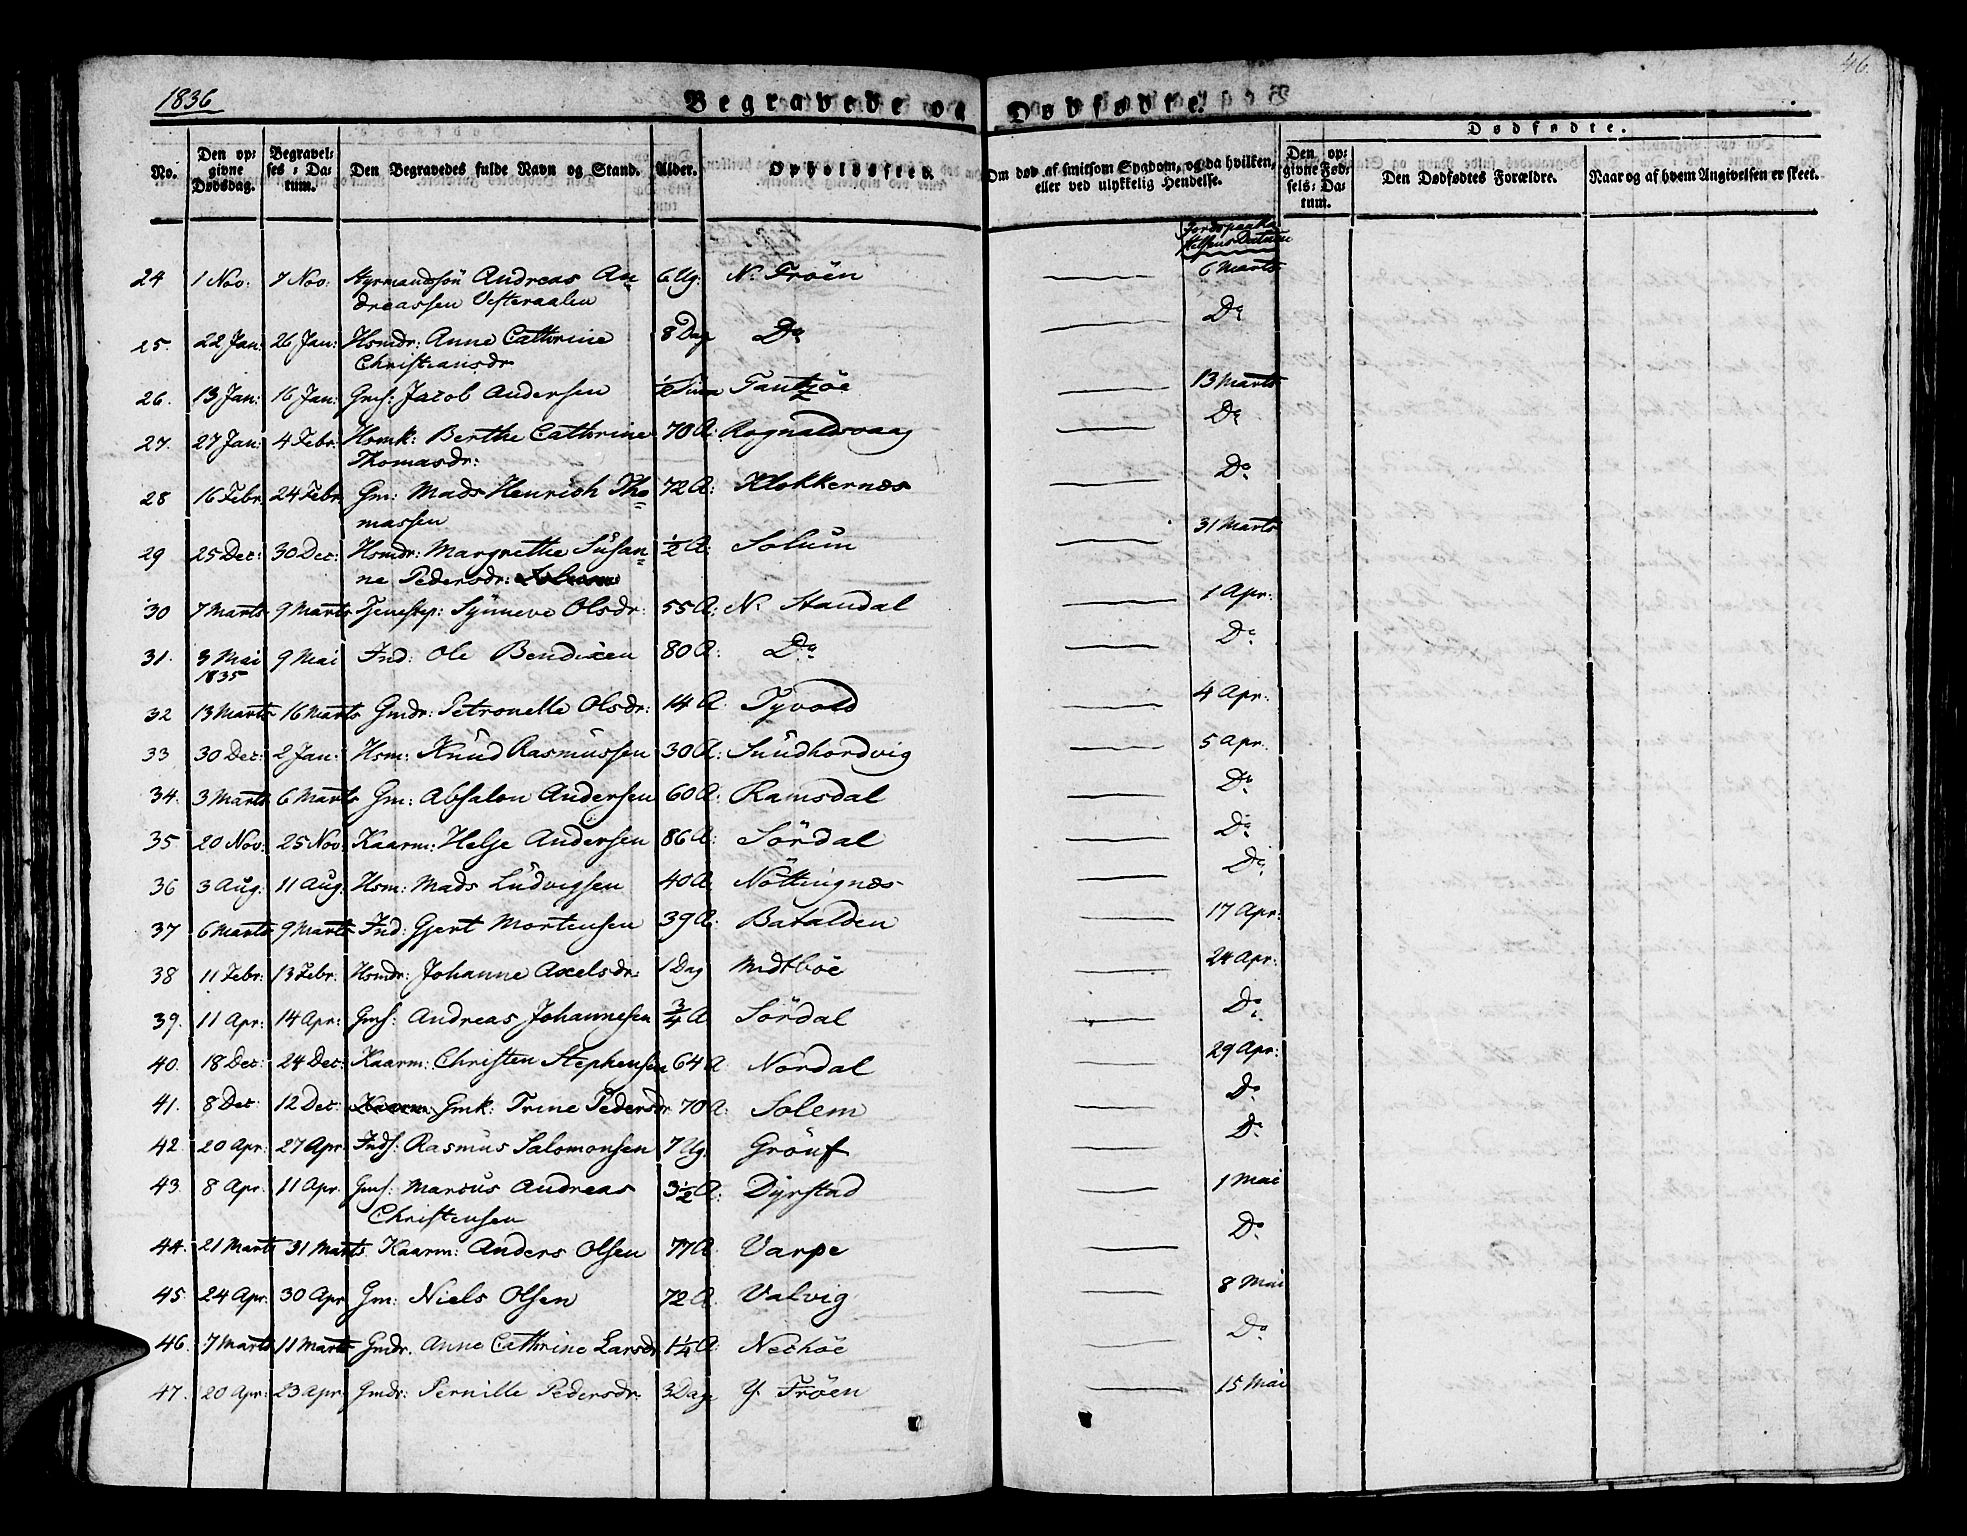 1836
46.
Begravede og Dødfødte.
Dødfødte.
No.
Den opgivne Dødsdag.
Begravelses-Datum.
Den Begravedes fulde Navn og Stand.
Alder.
Opholdssted.
Om død af smitsom Sygdom, og da hvilken, eller ved ulykkelig Hendelse.
Den opgivne Fødsels-Datum.
Den Dødfødtes Forældre.
Naar og af hvem Angivelsen er skeet.
Jordspaaka-
stelsens Datum
24 1 Nov: 7 Nov: Andreas An= 6 Ug. N. Fröen 6 Marts
dreassen Vesteraalen
25. 22 Jan: 26 Jan: Hsmdr: Anne Cathrine 8 Dage Do Do
Christiansdr
26. 13 Jan: 16 Jan: Gms: Jacob Andersen 13 Marts
27. 27 Jan: 4 Febr: Hsmk: Berthe Cathrine 70 A: Rognaldsvaag Do
Thomasdr:
28 16 Febr 24 Febr Gm: Mads Henrich Tho= 72 A: Klokkernæs Do
massen
29 25 Dec: 30 Dec: Hsmdr: Margrethe Susan= ½ A: Solum 31 Marts
ne Pedersdr:
30 7 Marts 9 Marts Tjenestep: Synneve Olsdr: 55 A: N. Standal 1 Apr:
31. 3 Mai 9 Mai Ind: Ole Bendixen 80 A: Do Do
1835
32 13 Marts 16 Marts Gmdr: Petronelle Olsdr: 14 A: Tyvold 4 Apr.
33 30 Dec: 2 Jan: Hsm: Knud Rasmussen 30 A: Sundhordvig 5 Apr.
34. 3 Marts 6 Marts Gm: Absalon Andersen 60 A: Ramsdal Do
35 20 Nov: 25 Nov Kaarm: Helje Andersen 86 A: Sördal Do
36 3 Aug: 11 Aug. Hsm: Mads Ludvigsen 40 A. Nöttingnæs Do
37 6 Marts 9 Marts Ind: Gjert Mortensen 39 A: Batalden 17 Apr:
38 11 Febr: 13 Febr: Hsmdr: Johanne Axelsdr: 1 Dag Midtböe 24 Apr:
39. 11 Apr: 14 Apr: Gms: Andreas Johannesen ¾ A. Sördal Do
40. 18 Dec: 24 Dec: Kaarm: Christen Stephensen 64 A: Nordal 29 Apr:
41. 8 Dec 12 Dec: Kaarm: Gmk: Trine Pedersdr 70 A: Solem Do
42. 20 Apr: 27 Apr Inds: Rasmus Salomonsen 7 Ug. Grönf Do
43. 8 Apr. 11 Apr. Gms: Marcus Andreas 3½ A: Dyrstad 1 Mai
Christensen
44. 21 Marts 31 Marts Kaarm: Anders Olsen 77 A: Varpe Do
45. 24 Apr. 30 Apr Gm: Niels Olsen 72 A. Valvig 8 Mai
46. 7 Marts 11 Marts Gmdr. Anne Cathrine Larsdr 1¼ A: Nechöe Do
47. 20 Apr: 23 Apr: Gmdr: Pernille Pedersdr. 3 Dage Y. Fröen 15 Mai